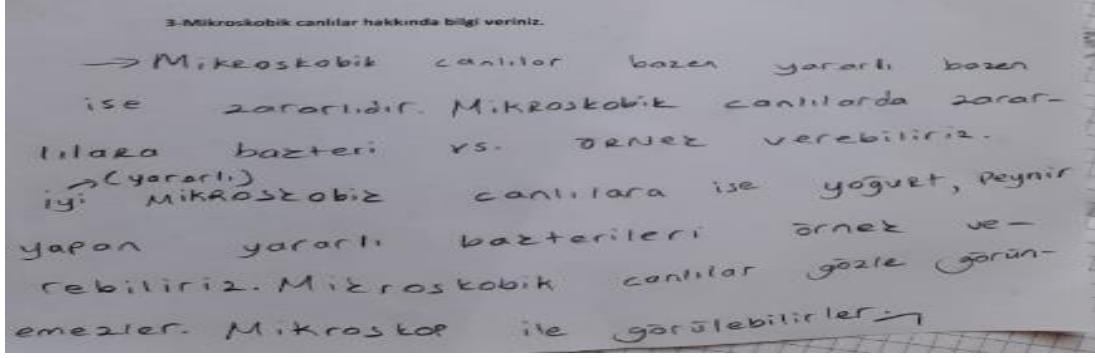 3-Mikroskobik canlılar hakkında bilgi veriniz.
→ Mikroskobik canlılar bazen yararlı bazen
ise zararlıdır. Mikroskobik canlılarda zarar-
lılara bakteri vs. örnek verebiliriz.
→(yararlı)
iyi Mikroskobik canlılara ise yoğurt, peynir
yapan yararlı bakterileri örnek ve-
rebiliriz. Mikroskobik canlılar gözle görün-
emezler. Mikroskop ile görülebilirler.